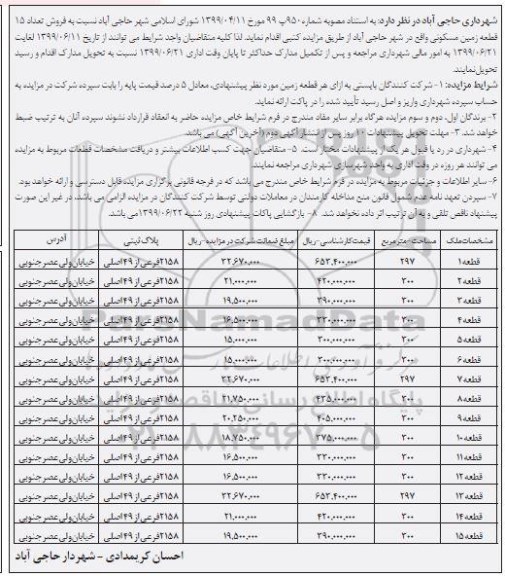 شهرداری حاجی آباد در نظر دارد: به استناد مصوبه شماره ۹۵۰پ ۹۹ مورخ ۱۳۹۹/۰۴/۱۱ شورای اسلامی شهر حاجی آباد نسبت به فروش تعداد ۱۵
قطعه زمین مسکونی واقع در شهر حاجی آباد از طریق مزایده کتبی اقدام نماید. لذا کلیه متقاضیان واجد شرایط می توانند از تاریخ ۱۳۹۹/۰۶/۱۱ لغایت
۱۳۹۹/۰۶/۲۱ به امور مالی شهرداری مراجعه و پس از تکمیل مدارک حداکثر تا پایان وقت اداری ۱۳۹۹/۰۶/۲۱ نسبت به تحویل مدارک اقدام و رسید
تحویل نمایند.
شرایط مزایده: ۱- شرکت کنندگان بایستی به ازای هر قطعه زمین مورد نظر پیشنهادی، معادل ۵ درصد قیمت پایه را بابت سپرده شرکت در مزایده به
حساب سپرده شهرداری واریز و اصل رسید تأیید شده را در پاکت ارائه نماید.
۲- برندگان اول، دوم و سوم مزایده هرگاه برابر سایر مفاد مندرج در فرم شرایط خاص مزایده حاضر به انعقاد قرارداد نشوند سپرده آنان به ترتیب ضبط
خواهد شد. ۳- مهلت تحویل پیشنهادات ۱۰ روز پس از انتشار آگهی دوم (آخرین آگهی) می باشد.
۴- شهرداری در رد یا قبول هر یک از پیشنهادات مختار است. ۵- متقاضیان جهت کسب اطلاعات بیشتر و دریافت مشخصات قطعات مربوط به مزایده
می توانند هر روزه در وقت اداری به واحد شهرسازی شهرداری مراجعه نمایند.
۶- سایر اطلاعات و جزئیات مربوط به مزایده در فرم شرایط خاص مندرج می باشد که در فرجه قانونی برگزاری مزایده قابل دسترسی و ارائه خواهد بود.
۷- سپردن تعهد نامه عدم شمول قانون منع مداخله کارمندان در معاملات دولتی توسط شرکت کنندگان در مزایده الزامی می باشد، در غیر این صورت
پیشنهاد ناقص تلقی و به آن ترتیب اثر داده نخواهد شد. ۸- بازگشایی پاکات پیشنهادی روز شنبه ۱۳۹۹/۰۶/۲۲ می باشد.
مشخصات ملک مساحت- متر مربع قیمت کارشناسی- ریال مبلغ ضمانت شرکت در مزایده- ریال پلاک ثبتی آدرس
قطعه ۱ ۲۹۷ ۶۵۳,۴۰۰,۰۰۰ ۳۲,۶۷۰,۰۰۰ ۲۱۵۸ فرعی از ۴۹ اصلی خیابان ولی عصر جنوبی
قطعه ۲ ۳۰۰ ۴۲۰,۰۰۰,۰۰۰ ۲۱,۰۰۰,۰۰۰ ۲۱۵۸ فرعی از ۴۹ اصلی خیابان ولی عصر جنوبی
قطعه ۳ ۳۰۰ ۳۹۰,۰۰۰,۰۰۰ ۱۹,۵۰۰,۰۰۰ ۲۱۵۸ فرعی از ۴۹ اصلی خیابان ولی عصر جنوبی
قطعه ۴ ۳۰۰ ۳۳۰,۰۰۰,۰۰۰ ۱۶,۵۰۰,۰۰۰ ۲۱۵۸ فرعی از ۴۹ اصلی خیابان ولی عصر جنوبی
قطعه ۵ ۳۰۰ ۳۰۰,۰۰۰,۰۰۰ ۱۵,۰۰۰,۰۰۰ ۲۱۵۸ فرعی از ۴۹ اصلی خیابان ولی عصر جنوبی
قطعه ۶ ۳۰۰ ۳۰۰,۰۰۰,۰۰۰ ۱۵,۰۰۰,۰۰۰ ۲۱۵۸ فرعی از ۴۹ اصلی خیابان ولی عصر جنوبی
قطعه ۷ ۲۹۷ ۶۵۳,۴۰۰,۰۰۰ ۳۲,۶۷۰,۰۰۰ ۲۱۵۸ فرعی از ۴۹ اصلی خیابان ولی عصر جنوبی
قطعه ۸ ۳۰۰ ۴۳۵,۰۰۰,۰۰۰ ۲۱,۷۵۰,۰۰۰ ۲۱۵۸ فرعی از ۴۹ اصلی خیابان ولی عصر جنوبی
قطعه ۹ ۳۰۰ ۴۰۵,۰۰۰,۰۰۰ ۲۰,۲۵۰,۰۰۰ ۲۱۵۸ فرعی از ۴۹ اصلی خیابان ولی عصر جنوبی
قطعه ۱۰ ۳۰۰ ۳۷۵,۰۰۰,۰۰۰ ۱۸,۷۵۰,۰۰۰ ۲۱۵۸ فرعی از ۴۹ اصلی خیابان ولی عصر جنوبی
قطعه ۱۱ ۳۰۰ ۳۳۰,۰۰۰,۰۰۰ ۱۶,۵۰۰,۰۰۰ ۲۱۵۸ فرعی از ۴۹ اصلی خیابان ولی عصر جنوبی
قطعه ۱۲ ۳۰۰ ۳۳۰,۰۰۰,۰۰۰ ۱۶,۵۰۰,۰۰۰ ۲۱۵۸ فرعی از ۴۹ اصلی خیابان ولی عصر جنوبی
قطعه ۱۳ ۲۹۷ ۶۵۳,۴۰۰,۰۰۰ ۳۲,۶۷۰,۰۰۰ ۲۱۵۸ فرعی از ۴۹ اصلی خیابان ولی عصر جنوبی
قطعه ۱۴ ۳۰۰ ۴۲۰,۰۰۰,۰۰۰ ۲۱,۰۰۰,۰۰۰ ۲۱۵۸ فرعی از ۴۹ اصلی خیابان ولی عصر جنوبی
قطعه ۱۵ ۳۰۰ ۳۹۰,۰۰۰,۰۰۰ ۱۹,۵۰۰,۰۰۰ ۲۱۵۸ فرعی از ۴۹ اصلی خیابان ولی عصر جنوبی
احسان کریمدادی - شهردار حاجی آباد
ParsNamadData